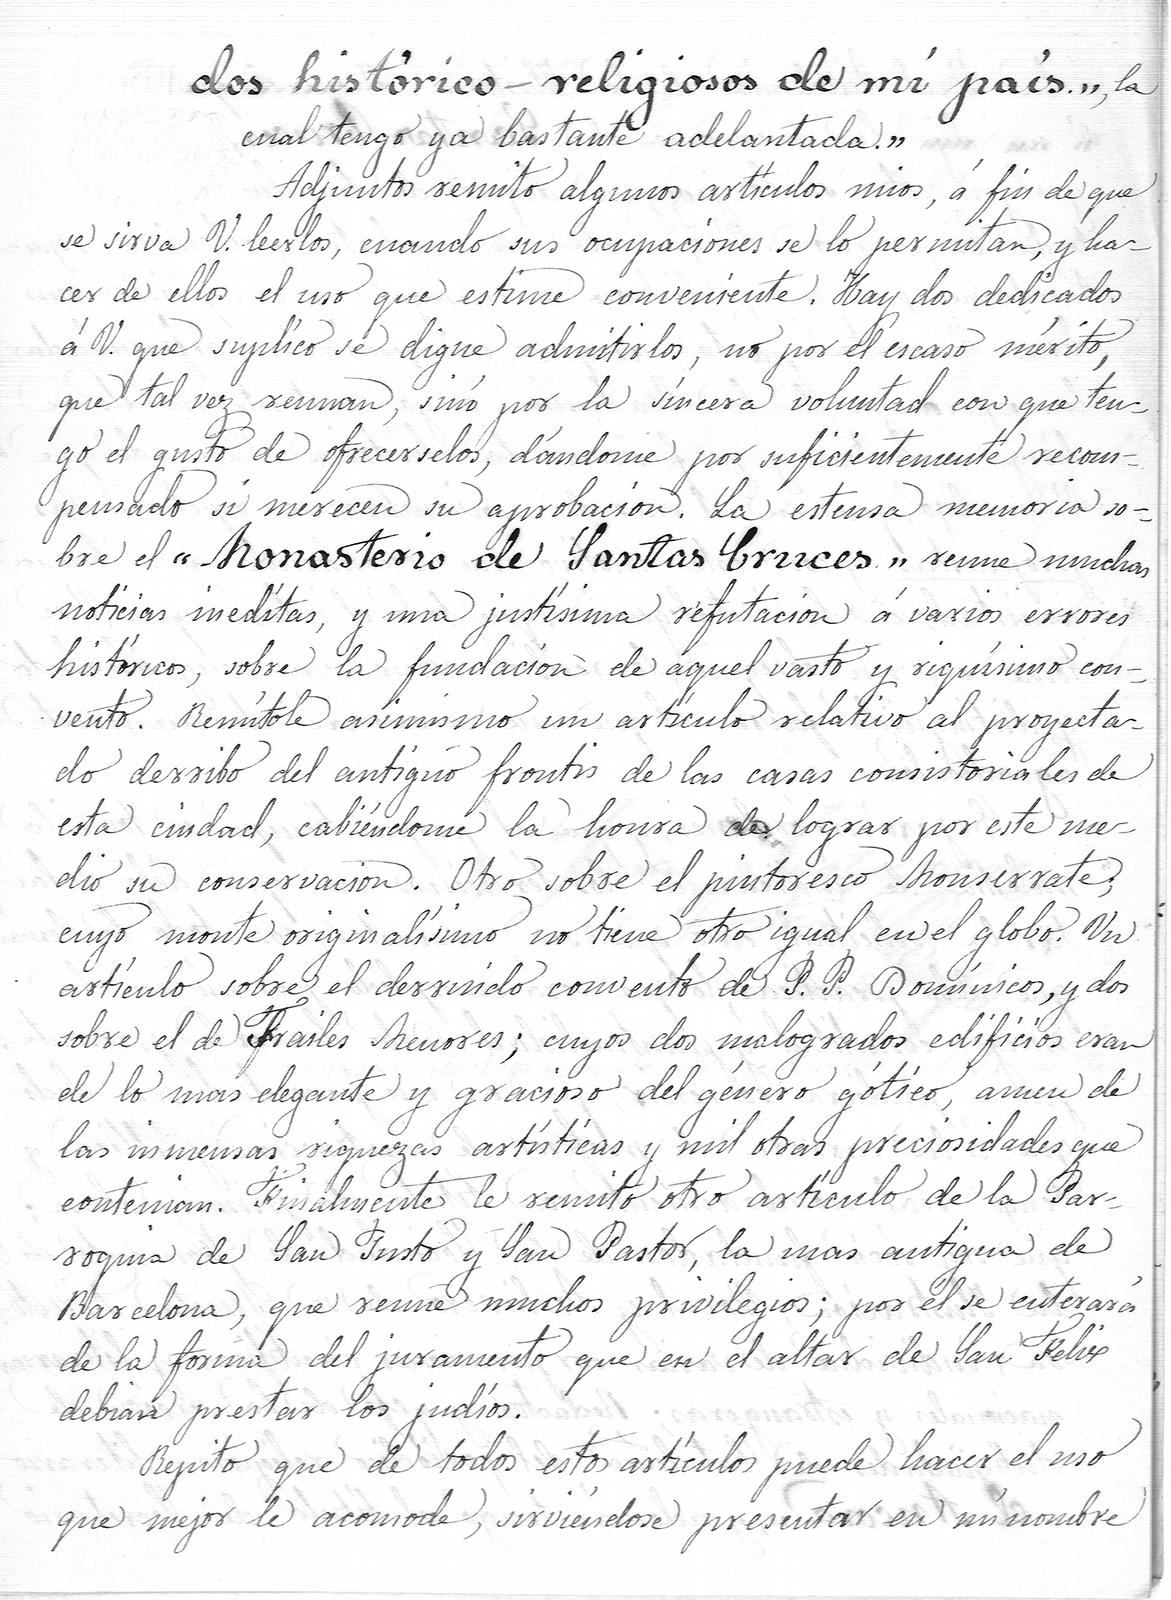 dos histórico-religiosos de mi país.", la
cual tengo ya bastante adelantada."
Adjuntos remito algunos artículos mios, á fin de que
se sirva V. leerlos, cuando sus ocupaciones se lo permitan, y ha-
cer de ellos el uso que estime conveniente. Hay dos dedicados
á V. que suplico se digne admitirlos, no por el escaso mérito,
que tal vez reunan, sinó por la sincera voluntad con que ten-
go el gusto de ofrecerselos, dándome por suficientemente recom-
pensado si merecen su aprobacion. La estensa memoria so-
bre el "Monasterio de Santas Cruces." reune muchas
noticias ineditas, y una justísima refutacion á varios errores
históricos, sobre la fundacion de aquel vasto y riquísimo con-
vento. Remítole asimismo un artículo relativo al proyecta-
do derribo del antiguo frontis de las casas consistoriales de
esta ciudad, cabiéndome la honra de lograr por este me-
dio su conservacion. Otro sobre el pintoresco Monserrate;
cuyo monte originalísimo no tiene otro igual en el globo. Un
artículo sobre el derruido convento de P. P. Domínicos, y dos
sobre el de Frailes Menores; cuyos dos malogrados edificios eran
de lo mas elegante y gracioso del género gótico, amen de
las inmensas riquezas artísticas y mil otras preciosidades que
contenian. Finalmente le remito otro artículo de la Par-
roquia de San Justo y San Pastor, la mas antigua de
Barcelona, que reune muchos privilegios; por el se enterará
de la forma del juramento que en el altar de San Felix
debian prestar los judíos.
Repito que de todos estos artículos puede hacer el uso
que mejor le acomode, sirviéndose presentar en mi nombre